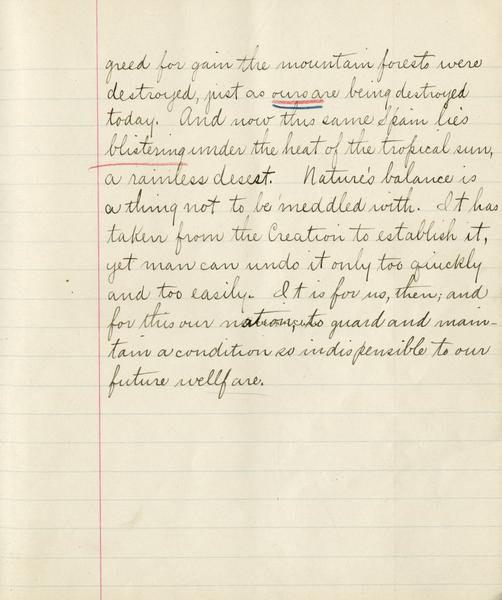 greed for gain the mountain forests were
destroyed, just as ours are being destroyed
today. And now this same Spain lies
blistering under the heat of the tropical sun,
a rainless desest. Nature's balance is
a thing not to be meddled with. It has
taken from the Creation to establish it,
yet man can undo it only too quickly
and too easily. It is for us, then, and
for this our nation to guard and main-
tain a condition so indispensible to our
future wellfare.